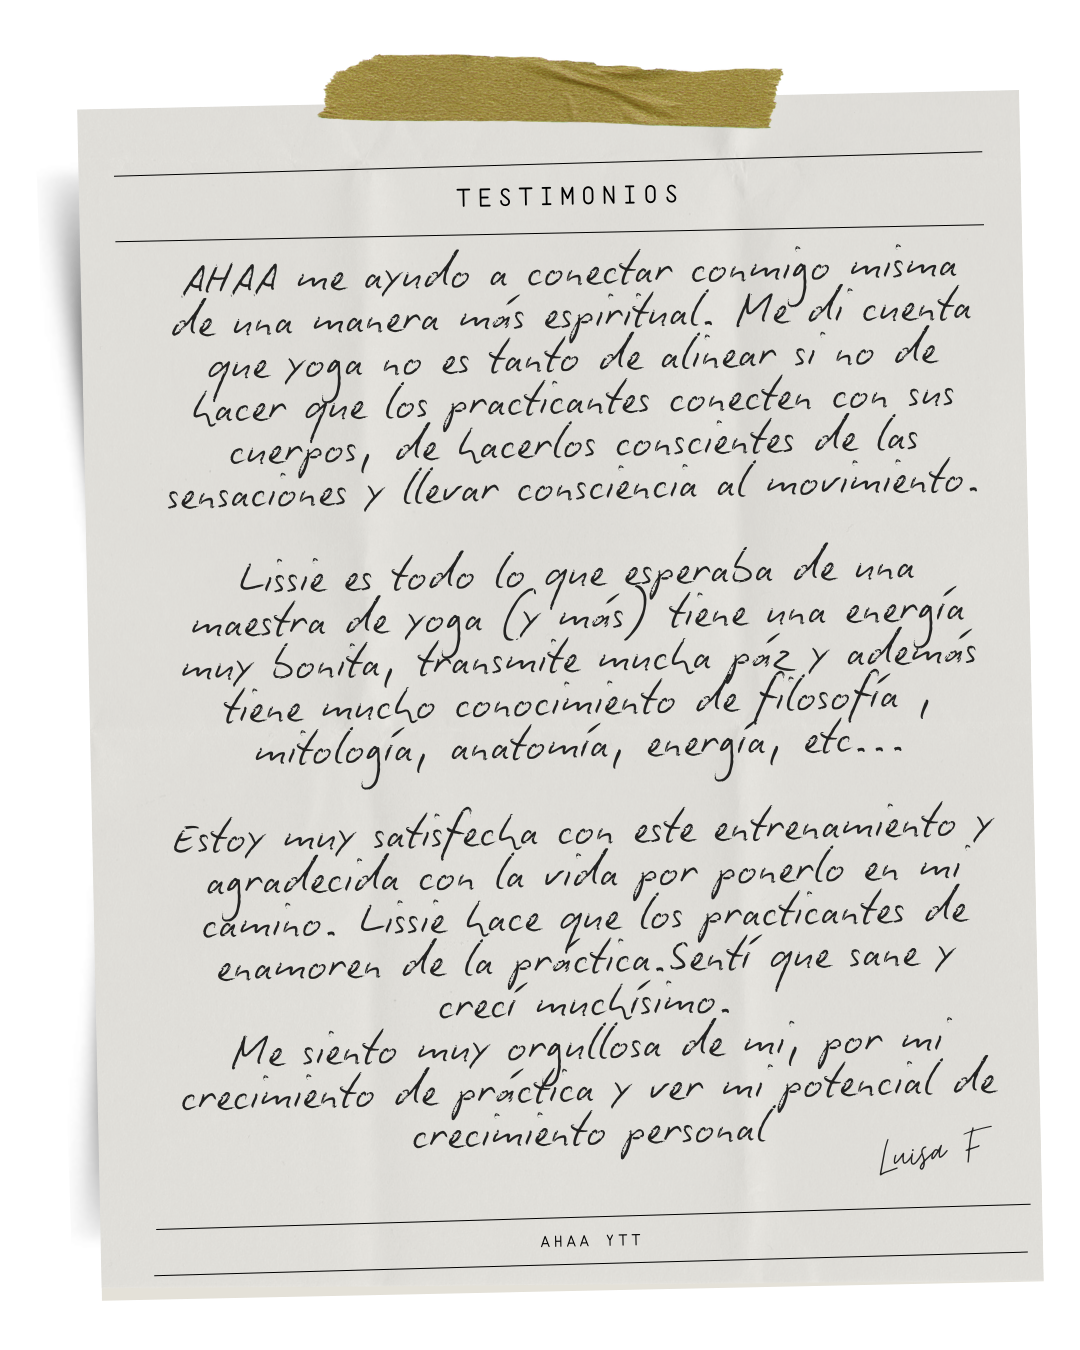 TESTIMONIOS
AHAA me ayudo a conectar conmigo misma
de una manera más espiritual. Me di cuenta
que yoga no es tanto de alinear si no de
hacer que los practicantes conecten con sus
cuerpos, de hacerlos conscientes de las
sensaciones y llevar consciencia al movimiento.
Lissie es todo lo que esperaba de una
maestra de yoga (y más) tiene una energía
muy bonita, transmite mucha páz y además
tiene mucho conocimiento de filosofía ,
mitología, anatomía, energía, etc...
Estoy muy satisfecha con este entrenamiento y
agradecida con la vida por ponerlo en mi
camino. Lissie hace que los practicantes de
enamoren de la práctica.Sentí que sane y
crecí muchísimo.
Me siento muy orgullosa de mi, por mi
crecimiento de práctica y ver mi potencial de
crecimiento personal
Luisa F
AHAA YTT